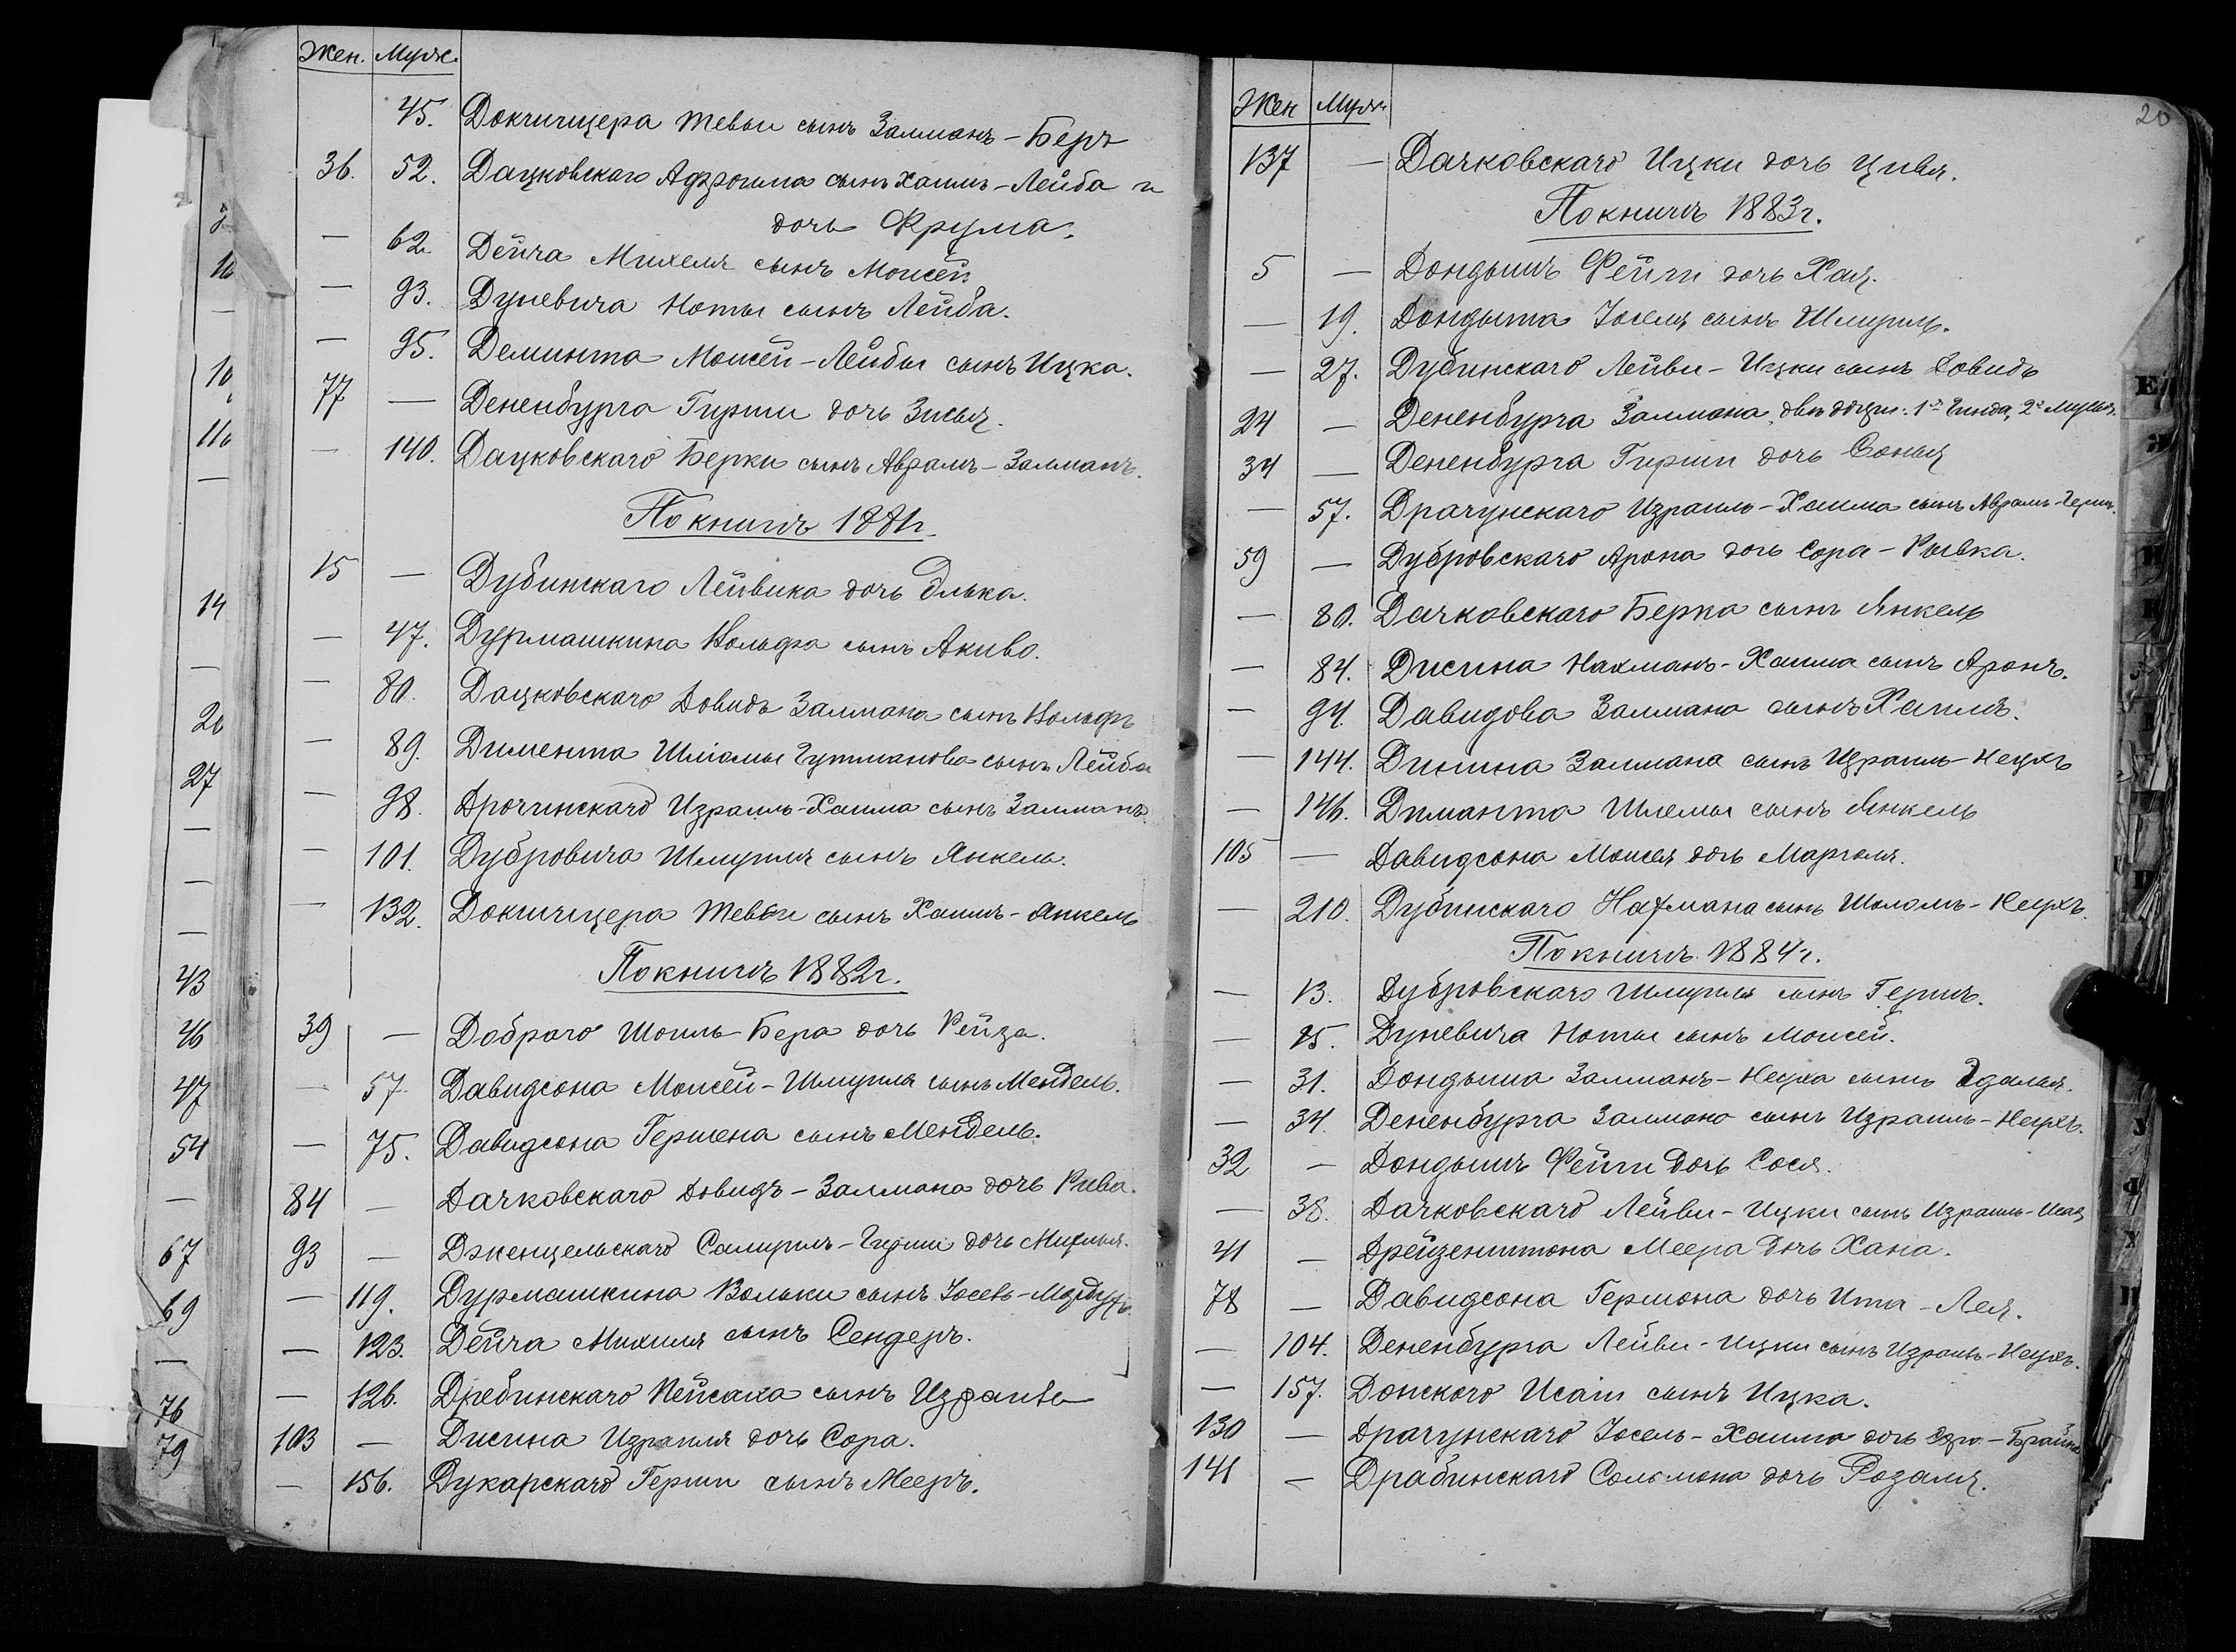 Жен. Муж.
45. Докшицера Тевьи сынъ Залманъ-Беръ
36. 52. Дацковскаго Афроима сынъ Хаимъ-Лейба и
дочь Фрума.
— 62. Дейча Михеля сынъ Моисей
— 93. Дуневича Ноты сынъ Лейба.
— 95. Деминта Моисей-Лейбы сынъ Ицка.
77 — Дененбурга Гирши дочь Зисья.
— 140. Дацковскаго Берки сынъ Аврамъ-Залманъ.
По книгѣ 1881г.
15 — Дубинскаго Лейвика дочь Элька.
— 47. Дурмашкина Вольфа сынъ Акиво.
— 80. Дацковскаго Довидъ Залмана сынъ Вольфъ
— 89. Димента Шліомы Гутманова сынъ Лейба
— 98. Дрочинскаго Израиль-Хаима сынъ Залманъ
— 101. Дубровича Шмуиля сынъ Янкель.
— 132. Докшицера Тевьи сынъ Хаимъ-Янкель
По книгѣ 1882г.
39 — Добраго Шоиль-Бера дочь Рейза.
— 57. Давидсона Моисей-Шмуиля сынъ Мендель.
— 75. Давидсона Гершена сынъ Мендель.
84 — Дачковскаго Довидъ-Залмана дочь Рива.
93 — Дженцельскаго Самуиль-Гирши дочь Михля.
— 119. Дурмашкина Вольки сынъ Іосевъ-Мордухъ.
— 123. Дейча Михиля сынъ Сендеръ.
— 126. Дребинскаго Пейсаха сынъ Израиль
103 — Дисина Израиля дочь Сора.
— 156. Дукарскаго Герши сынъ Мееръ.
10
10
11
14
20
27
43
46
47
54
67
69
76
79
20
Жен Муж
137 — Дачковскаго Ицки дочь Цивья.
По книгѣ 1883г.
5 — Дондышъ Фейги дочь Хая.
— 19. Дондыша Іоселя сынъ Шмуиль.
— 27. Дубинскаго Лейви-Ицки сынъ Довидъ
24 — Дененбурга Залмана, двѣ дочери: 1я Гинда, 2я
34 — Дененбурга Гирши дочь Сонья
— 57. Драчунскаго Израиль-Хаима сынъ Аврамъ-Гершъ.
59 — Дубровскаго Арона дочь Сора-Рывка.
— 80. Дачковскаго Берка сынъ Янкель
— 84. Дисина Нахманъ-Хаима сынъ Аронъ.
— 94. Давидова Залмана сынъ Хаимъ.
— 144. Дисина Залмана сынъ Израиль-Неухъ
— 146. Диманта Шлемы сынъ Янкель
105 — Давидсона Моисея дочь Марголя.
— 210. Дубинскаго Нахмана сынъ Шоломъ-Неухъ.
По книгѣ 1884г.
— 13. Дубровскаго Шмуиля сынъ Гершъ.
— 15. Дуневича Ноты сынъ Моисей.
— 31. Дондыша Залманъ-Неуха сынъ Эдалья.
— 34. Дененбурга Залмана сынъ Израиль-Неухъ.
32 — Дондышъ Фейги дочь Сося.
— 38. Дачковскаго Лейви-Ицки сынъ Израиль-Исаа
41 — Дрейценштона Меера дочь Хана.
78 — Давидсона Гершона дочь Ита-Лея.
— 104. Дененбурга Лейви-Ицки сынъ Израиль-Неухъ.
— 157. Донского Исаіи сынъ Ицка.
130 — Драчунскаго Іосель-Хаима дочь Сора-Брайна
141 — Драбинскаго Соломона дочь Розалія.